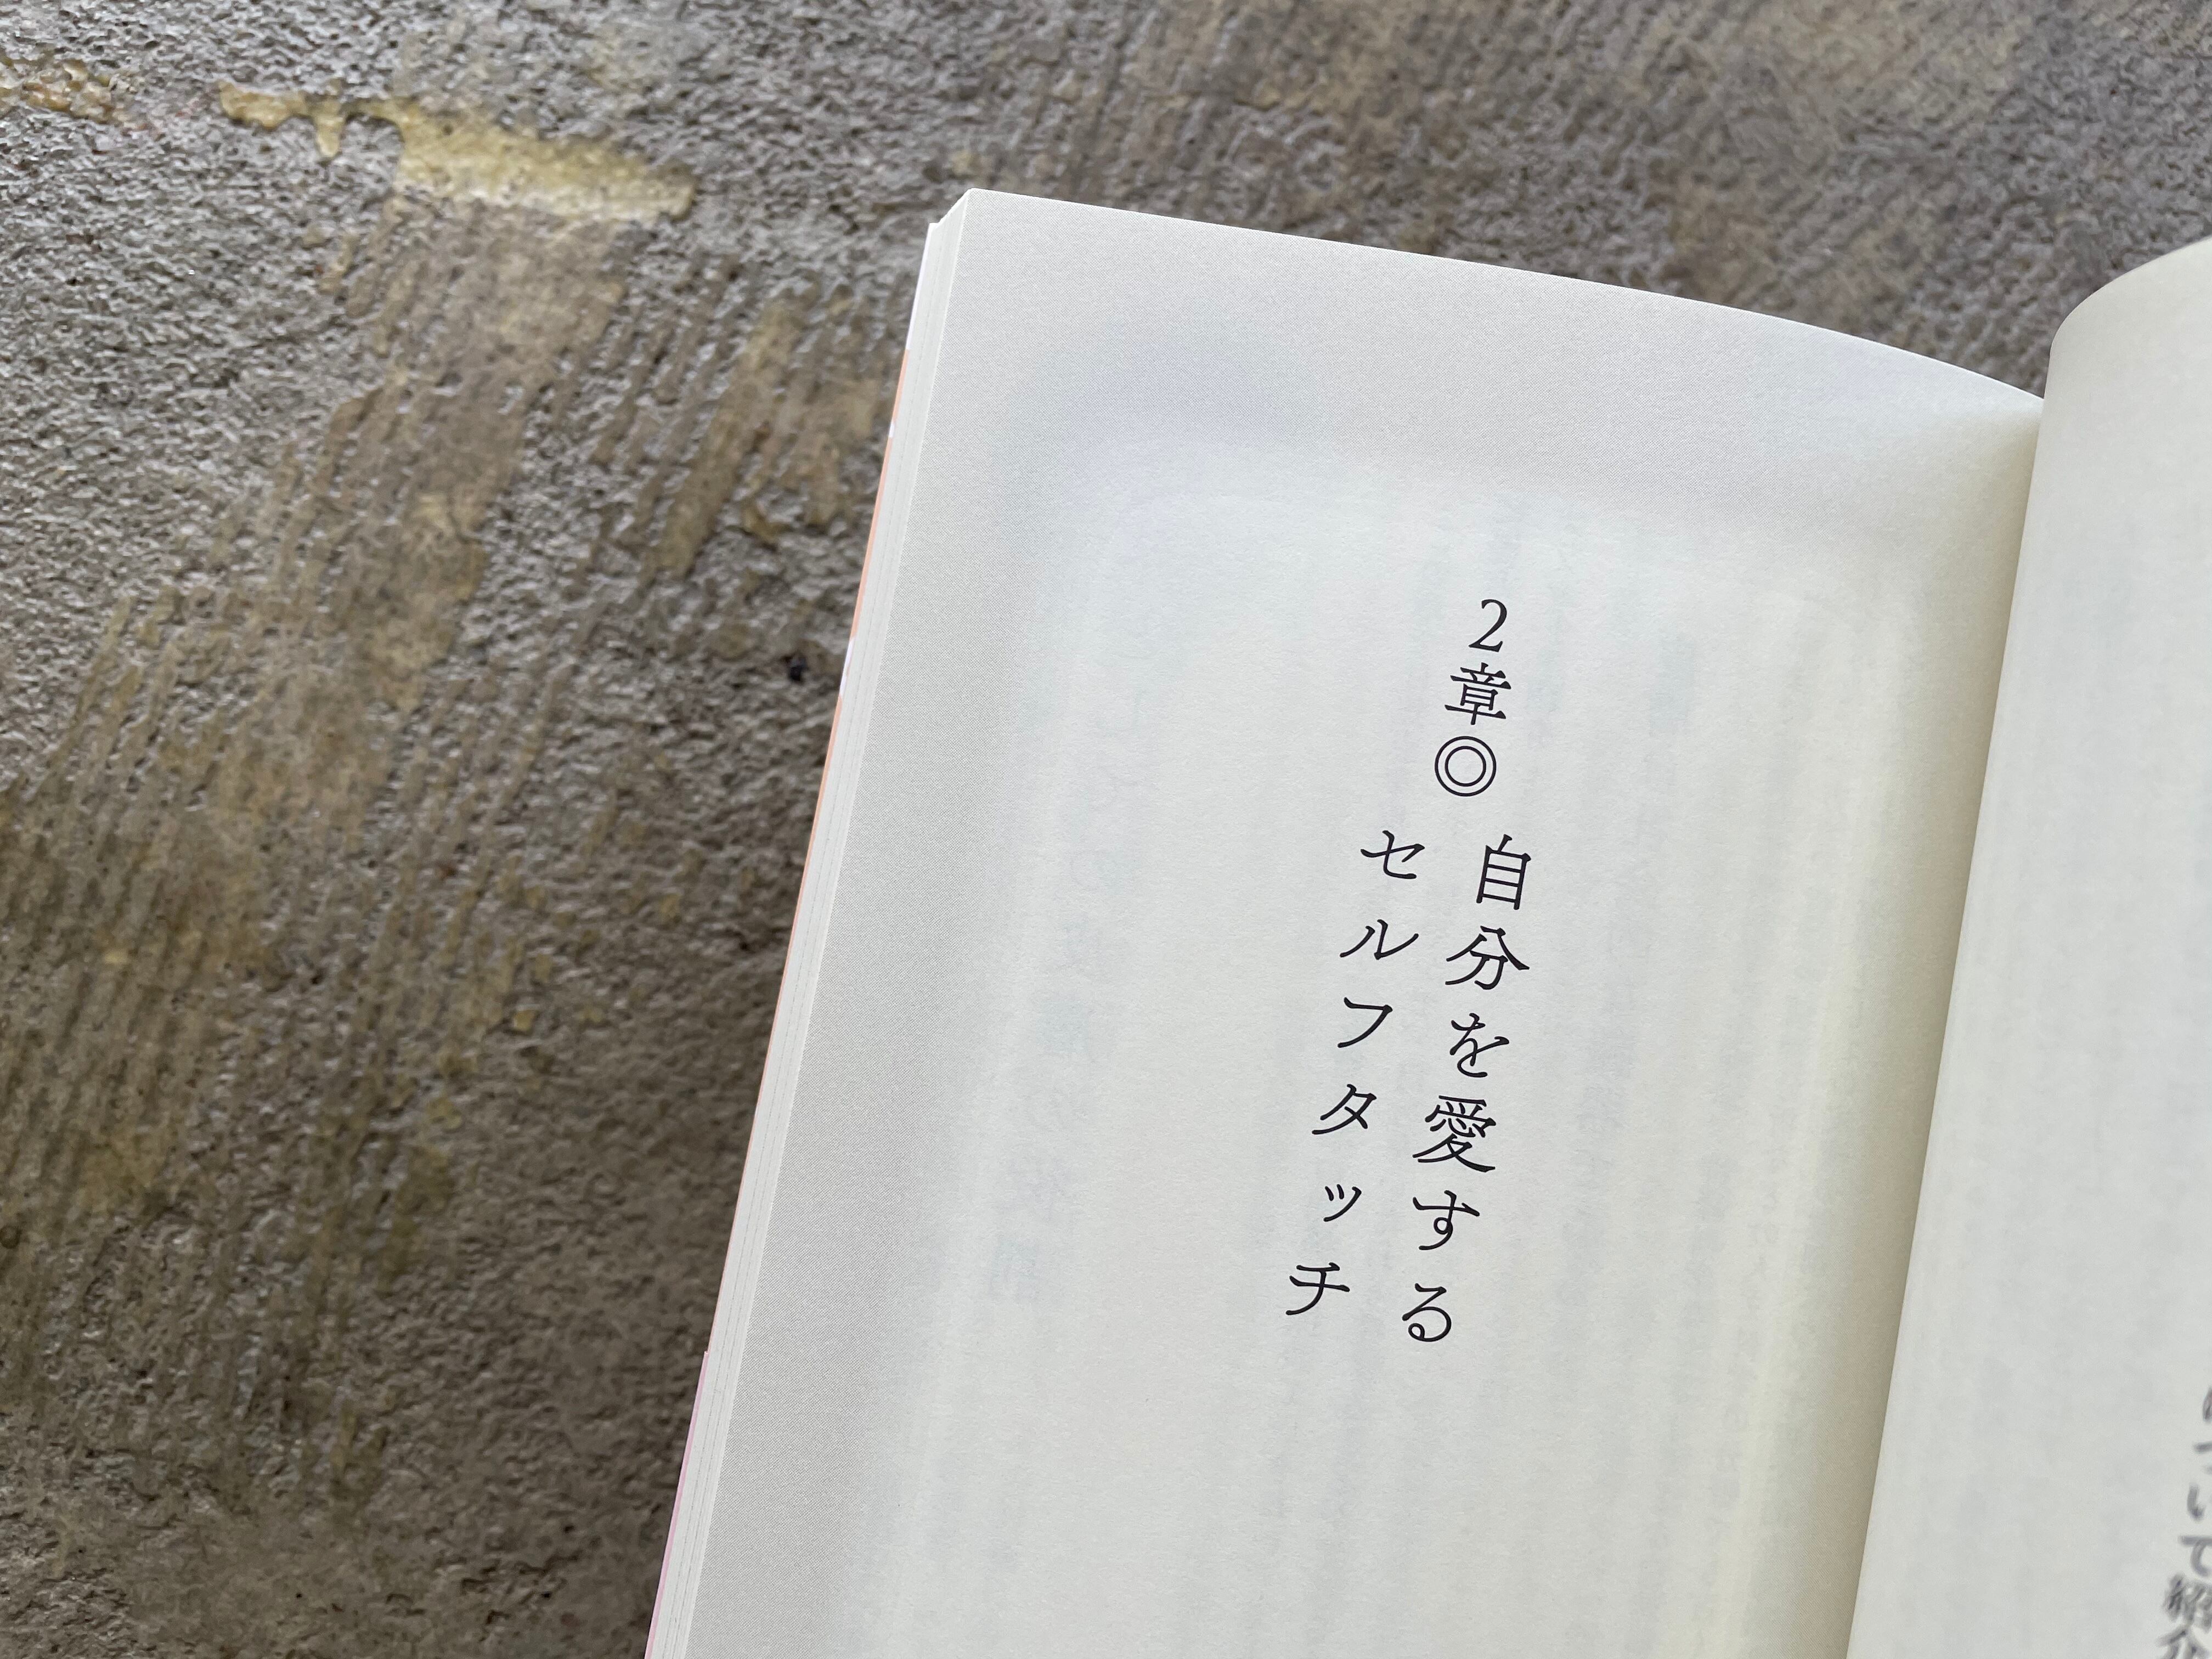 2章◎
自分を愛する
セルフタッチ
ついて紹介